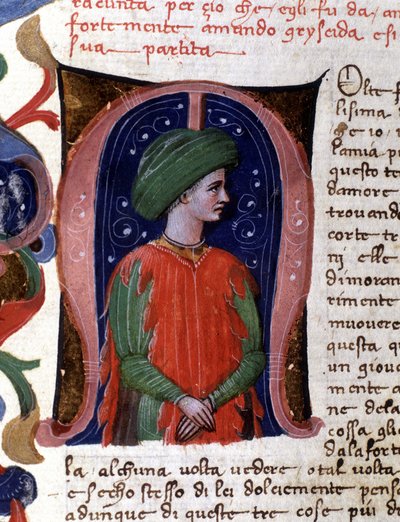 racunta per çio che egli fu da, am
fortemente amando gryseida e si
sua partita
Olte
lisima
se io,
lamia pi
questo te
damore
trouando
corte tr
ni elle
dimoran
rimente
muouere
questa qu
un giou
mente a
ne dela
cossa glie
dalaforte
la, alchuna volta vedere, o tal volta
e secho stesso di lei dolciemente pens
adunque di queste tre cose piu di